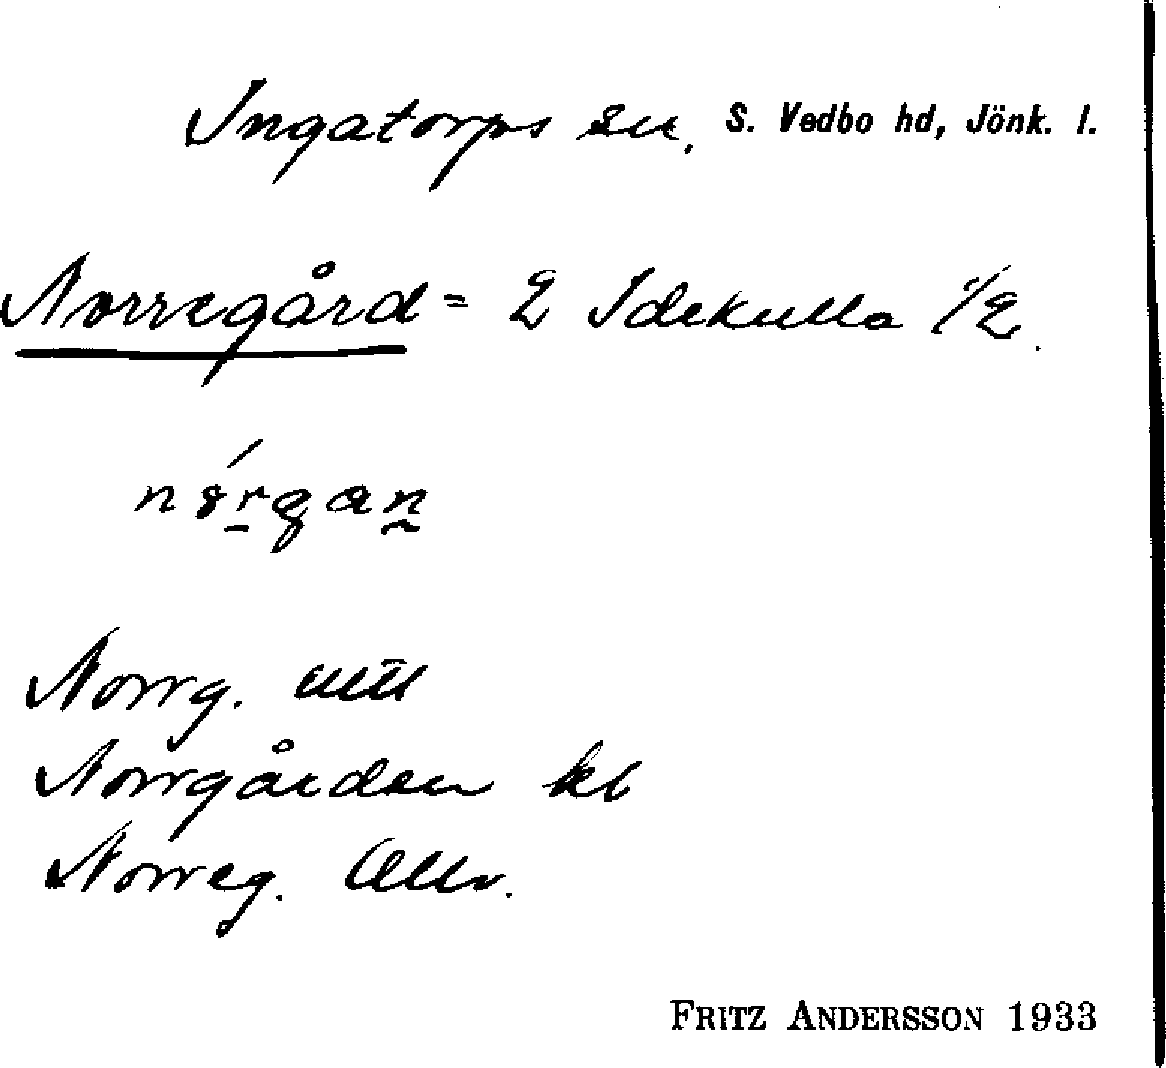 Ingatorps sn, S. Vedbo hd, Jönk. l.
Norregård = 2 Idekulla 1/2.
Norrg.
Norrgården kl
Norreg. Allv.
FRITZ ANDERSSON 1933